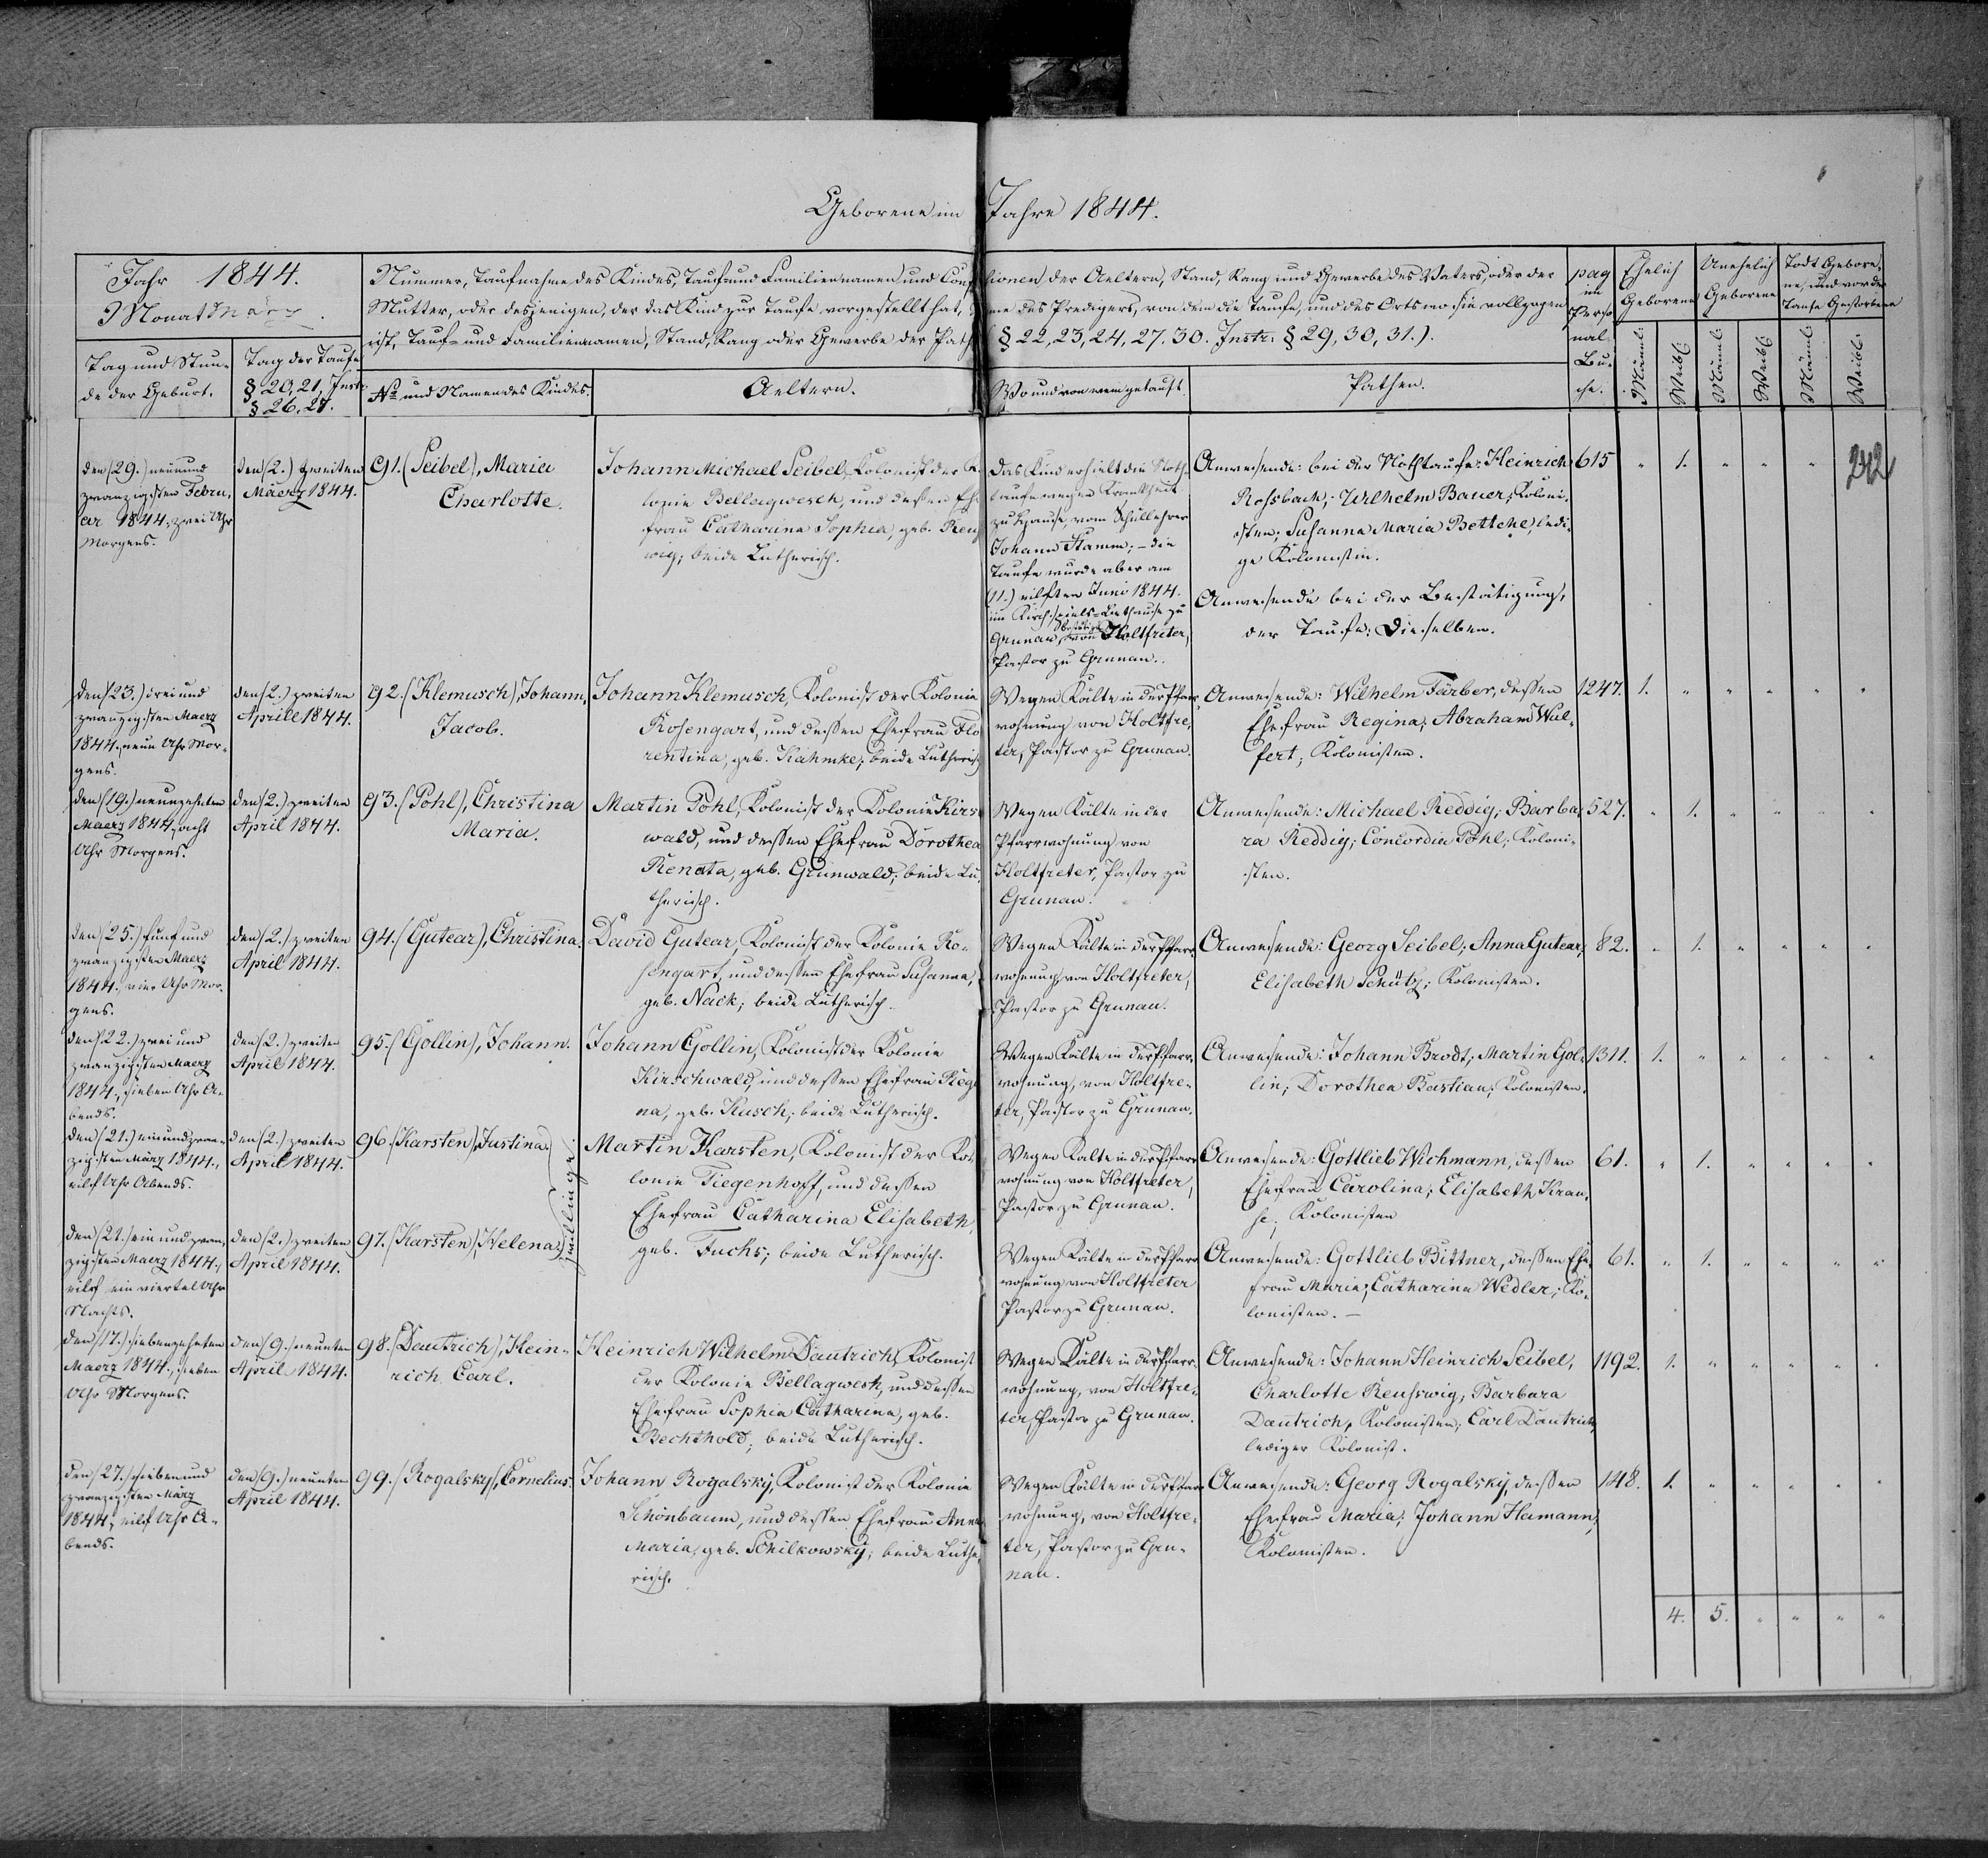 Geborene im Jahre 1844.
Jahr 1844.
Monat März.
Nummer, Taufnahme des Kindes, Tauf- und Familiennamen und Conf
Mutter, oder desjenigen, der das Kind zur Taufe vorgestellt hat,
ist, Tauf- und Familiennamen, Stand, Rang oder Gewerbe der Path
ssionen der Aeltern, Stand, Rang und Gewerbe des Vaters, oder der
me des Predigers, von dem die Taufe, und des Orts wo sie vollzogen
§ 22, 23, 24, 27. 30. Instr: § 29, 30, 31.).
pag im Perso nal- Bu- che.
Ehelich Geborene
Unehelich Geborene
Todt Gebore- ne, und vor der Taufe Gestorbene
Tag und Stun-
de der Geburt.
Tag der Taufe
§ 20, 21, Instr.
§ 26, 27.
No und Namen des Kindes.
Aeltern.
Wo und von wem getauft.
Pathen.
Männl:
Weibl:
Männl:
Weibl:
Männl:
Weibl:
242
den (29.) neunund
zwanzigsten Febru-
ar 1844, zwei Uhr
Morgens.
den (2.) zweiten
Maerz 1844.
91. (Seibel), Maria
Charlotte.
Johann Michael Seibel, Kolonist der Ko
lonie Bellagwesch, und dessen Ehe
frau Catharina Sophia, geb. Rens
wig; beide Lutherisch.
Das Kind erhielt die Noth-
taufe wegen Krankheit
zu Hause, vom Schullehrer
Johann Stamm; – die
Taufe wurde aber am
(11.) eilften Juni 1844.
im Kirchspiels-Bethause zu
bestätigt
Grunau, von Holtfreter,
Pastor zu Grunau.
Anwesende: bei der Nothtaufe: Heinrich
Rossbach; Wilhelm Bauer, Koloni-
sten; Susanna Maria Bettche, ledi-
ge Kolonistin.
Anwesende bei der Bestätigung,
der Taufe: Dieselben.
615 " 1. " " "
den (23.) drei und
zwanzigsten Maerz
1844, neun Uhr Mor-
gens.
den (2.) zweiten
April 1844.
92. (Klemusch), Johann,
Jacob.
Johann Klemusch, Kolonist der Kolonie
Rosengart, und dessen Ehefrau Flo
rentina, geb. Kahmke; beide Lutherisch
Wegen Kälte in der Pfarr-
wohnung von Holtfre-
ter, Pastor zu Grunau.
Anwesende: Wilhelm Färber, dessen
Ehefrau Regina; Abraham Wul-
fert; Kolonisten.
1247. 1. " " " " "
den (19.) neunzehnten
Maerz 1844, acht
Uhr Morgens.
den (2.) zweiten
April 1844.
93. (Pohl), Christina
Maria.
Martin Pohl, Kolonist der Kolonie Kirsch
wald, und dessen Ehefrau Dorothea
Renata, geb. Grunwald; beide Lu-
therisch.
Wegen Kälte in der
Pfarrwohnung von
Holtfreter, Pastor zu
Grunau.
Anwesende: Michael Reddig; Barba-
ra Reddig; Concordia Pohl; Koloni-
sten.
527. " 1. " " " "
den (25.) fünf und
zwanzigsten Maerz
1844, vier Uhr Mor-
gens.
den (2.) zweiten
April 1844.
94. (Gutear), Christina.
David Gutear, Kolonist der Kolonie Ro-
sengart, und dessen Ehefrau Susanna,
geb. Nack; beide Lutherisch.
Wegen Kälte in der Pfarr-
wohnung, von Holtfreter,
Pastor zu Grunau.
Anwesende: Georg Seibel; Anna Gutear;
Elisabeth Schütz; Kolonisten.
82. " 1. " " " "
den (22.) zwei und
zwanzigsten Maerz
1844, sieben Uhr A-
bends.
den (2.) zweiten
April 1844.
95. (Gollin), Johann.
Johann Gollin, Kolonist der Kolonie
Kirschwald, und dessen Ehefrau Regi
na, geb. Kusch; beide Lutherisch.
Wegen Kälte in der Pfarr-
wohnung, von Holtfre-
ter, Pastor zu Grunau.
Anwesende: Johann Brodt; Martin Gol-
lin; Dorothea Bastian; Kolonisten.
1311. 1. " " " " "
den (21.) ein und zwan-
zigsten März 1844.,
eilf Uhr Abends.
den (2.) zweiten
April 1844.
96. (Karsten), Justina.
Zwillinge.
Martin Karsten, Kolonist der Ko-
lonie Tiegenhoff, und dessen
Ehefrau Catharina Elisabeth,
geb. Fuchs; beide Lutherisch.
Wegen Kälte in der Pfarr
wohnung von Holtfreter,
Pastor zu Grunau.
Anwesende: Gottlieb Wichmann, dessen
Ehefrau Carolina; Elisabeth Krau-
se; Kolonisten
61. " 1. " " " "
den (21.) ein und zwan-
zigsten Maerz 1844.,
eilf ein viertel Uhr
Nachts.
den (2.) zweiten
April 1844.
97. (Karsten), Helena.
Wegen Kälte in der Pfarr
wohnung von Holtfreter
Pastor zu Grunau.
Anwesende: Gottlieb Bittner, dessen Ehe-
frau Maria; Catharina Wedler; Ko-
lonisten. –
61. " 1. " " " "
den (17.) siebenzehnten
Maerz 1844., sieben
Uhr Morgens.
den (9.) neunten
April 1844.
98. (Dautrich), Hein-
rich Carl.
Heinrich Wilhelm Dautrich, Kolonist
der Kolonie Bellagwesh, und dessen
Ehefrau Sophia Catharina, geb.
Bechthold; beide Lutherisch.
Wegen Kälte in der Pfarr-
wohnung, von Holtfre-
ter, Pastor zu Grunau.
Anwesende: Johann Heinrich Seibel,
Charlotte Renswig; Barbara
Dautrich, Kolonisten; Carl Dautrich,
lediger Kolonist.
1192. 1. " " " " "
den (27.) sieben und
zwanzigsten März
1844., eilf Uhr A-
bends.
den (9.) neunten
April 1844.
99. (Rogalsky), Cornelius.
Johann Rogalsky, Kolonist der Kolonie
Schönbaum, und dessen Ehefrau Anna
Maria, geb. Schilkowsky; beide Luthe-
risch.
Wegen Kälte in der Pfarr
wohnung, von Holtfre-
ter, Pastor zu Gru-
nau.
Anwesende: Georg Rogalsky, dessen
Ehefrau Maria; Johann Hamann;
Kolonisten.
148. 1. " " " " "
4. 5. " " " "